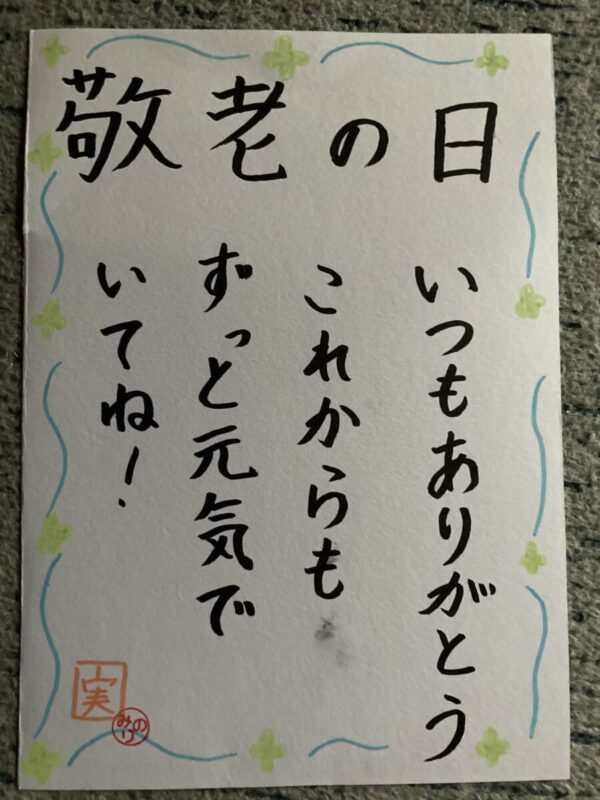 敬老の日
いつもありがとう
これからも
ずっと元気で
いてね!
実
みのり